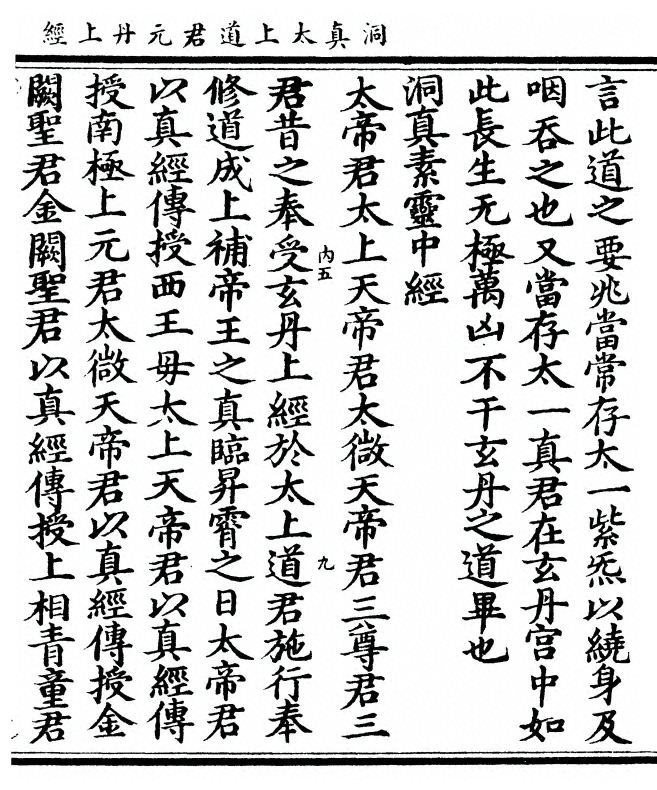 洞真太上道君元丹上經
言此道之要兆當常存太一紫炁以繞身及
咽吞之也又當存太一真君在玄丹宫中如
此長生无極萬凶不干玄丹之道畢也
洞真素靈中經
太帝君太上天帝君太微天帝君三尊君三
君昔之奉受玄丹上經於太上道君施行奉
内五
九
修道成上補帝王之真臨昇霄之日太帝君
以真經傳授西王毋太上天帝君以真經傳
授南極上元君太微天帝君以真經傳授金
闕聖君金闕聖君以真經傳授上相青童君